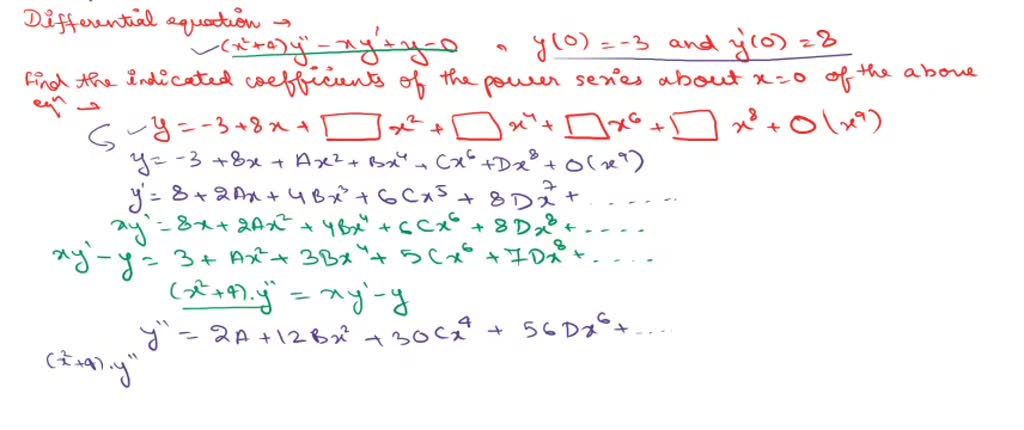 Differential equation →
(x²+4)y'' - xy' + y = 0 , y(0) = -3 and y'(0) = 8
Find the indicated coefficients of the power series about x=0 of the above
eqⁿ →
y = -3 + 8x + □ x² + □ x⁴ + □ x⁶ + □ x⁸ + O(x⁹)
y = -3 + 8x + Ax² + Bx⁴ + Cx⁶ + Dx⁸ + O(x⁹)
y' = 8 + 2Ax + 4Bx³ + 6Cx⁵ + 8Dx⁷ + ......
xy' = 8x + 2Ax² + 4Bx⁴ + 6Cx⁶ + 8Dx⁸ + ....
xy' - y = 3 + Ax² + 3Bx⁴ + 5Cx⁶ + 7Dx⁸ + ....
(x²+4).y'' = xy' - y
y'' = 2A + 12Bx² + 30Cx⁴ + 56Dx⁶ + ....
(x²+4).y''